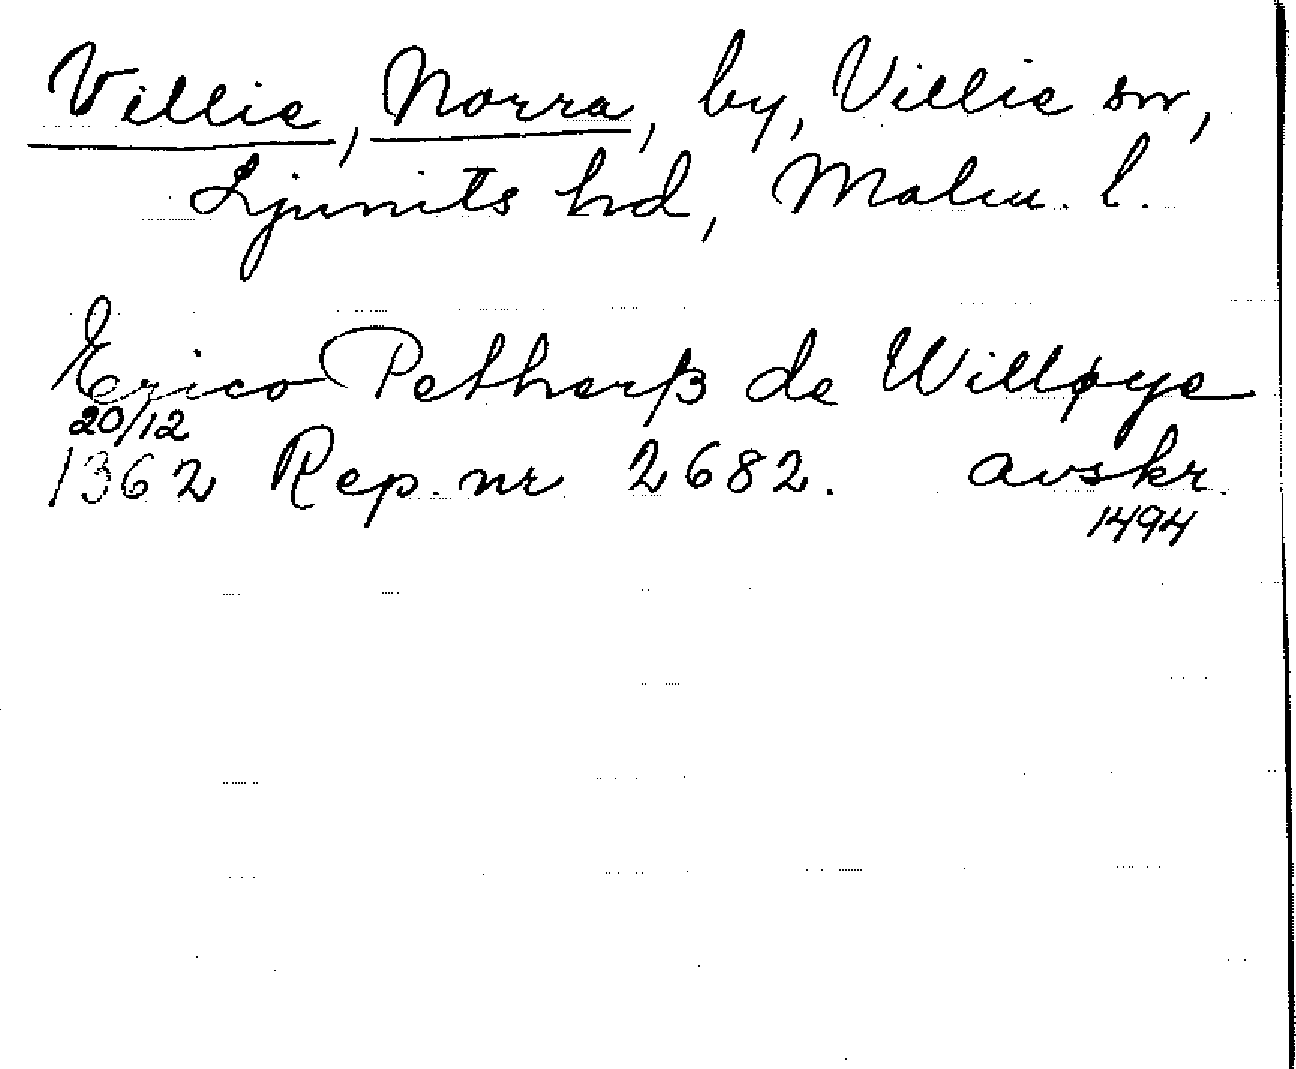 Villie, Norra, by, Villie sn,
Ljunits hd, Malm. l.
Erico Petherß de Willøye
20/12
1362 Rep. nr 2682. avskr.
1494